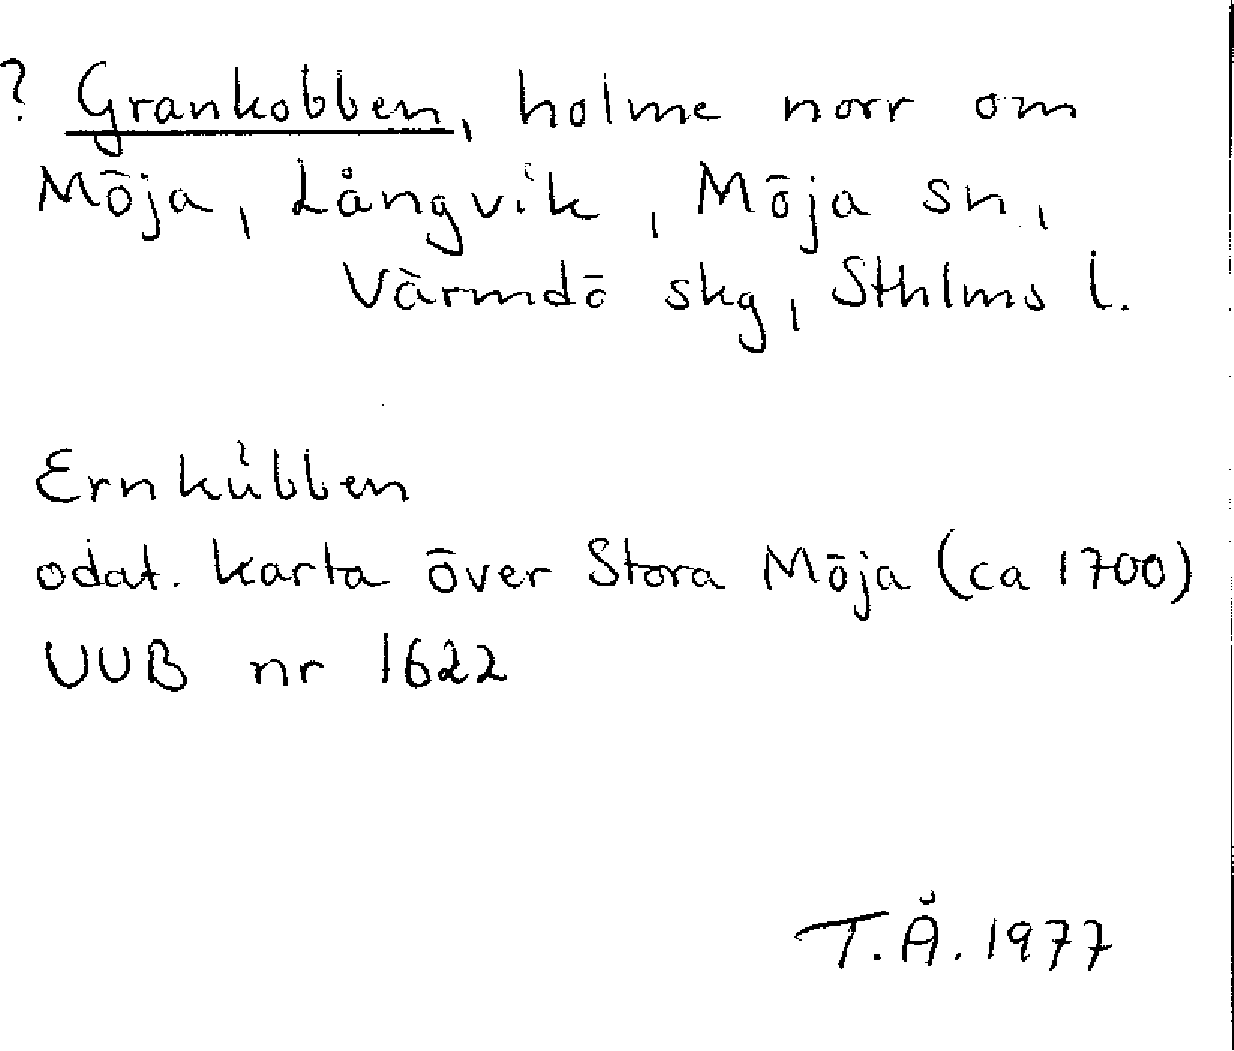 ? Grankobben, holme norr om
Möja, Långvik, Möja sn,
Värmdö skg, Sthlms l.
Ernkübben
odat. karta över Stora Möja (ca 1700)
UUB nr 1622
T.Å. 1977